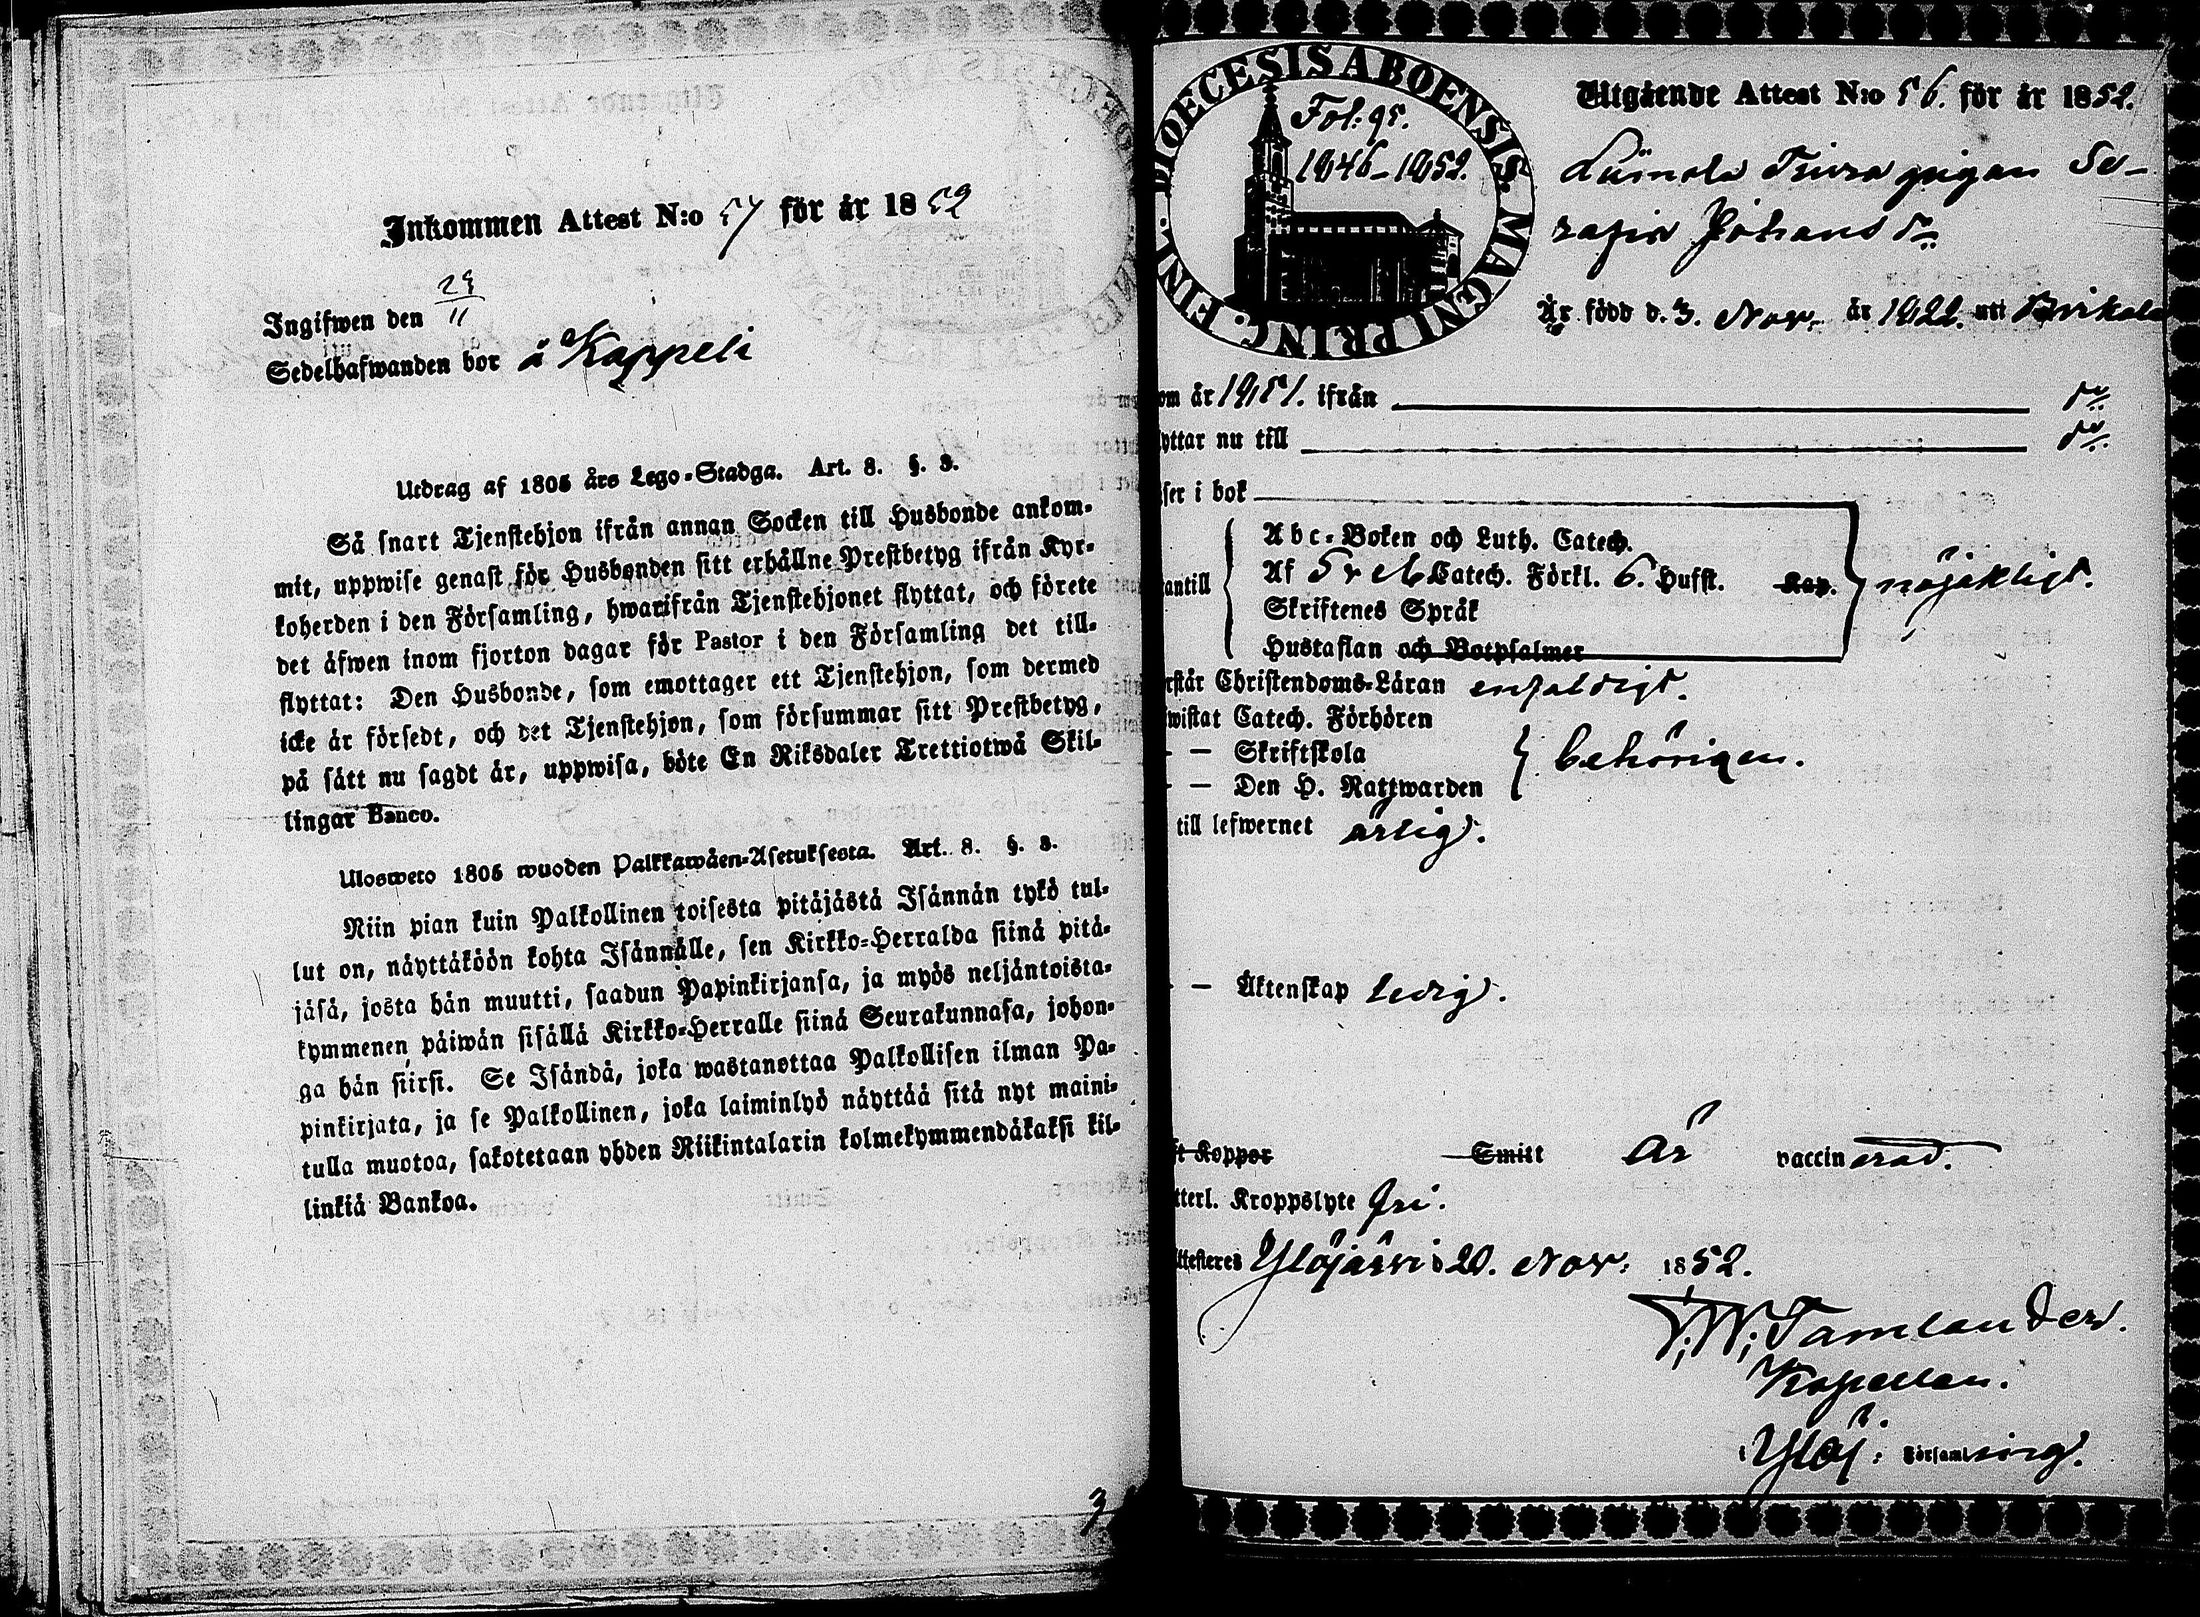 Inkommen Attest N:o 57 för år 1852
Ingifwen den 29/11
Sedelhafwanden bor å Kappeli
Utdrag af 1805 års Lego-Stadga. Art. 8. §. 3.
Så snart Tjenstehjon ifrån annan Socken till Husbonde ankom-
mit, uppwise genast för Husbonden sitt erhållne Prestbetyg ifrån Kyr-
koherden i den Församling, hwarifrån Tjenstehjonet flyttat, och förete
det äfwen inom fjorton dagar för Pastor i den Församling det till-
flyttat: Den Husbonde, som emottager ett Tjenstehjon, som dermed
icke är försedt, och det Tjenstehjon, som försummar sitt Prestbetyg,
på sätt nu sagdt är, uppwisa, böte En Riksdaler Trettiotwå Skil-
lingar Banco.
Ulosweto 1805 wuoden Palkkawäen-Asetuksesta. Art. 8. §. 3.
Niin pian kuin Palkollinen toisesta pitäjästä Isännän tykö tul-
lut on, näyttäköön kohta Isännälle, sen Kirkko-Herralda siinä pitä-
jäsä, josta hän muutti, saadun Papinkirjansa, ja myös neljäntoista-
kymmenen päiwän sisällä Kirkko-Herralle siinä Seurakunnasa, johon-
ga hän siirsi. Se Isändä, joka wastanottaa Palkollisen ilman Pa-
pinkirjata, ja se Palkollinen, joka laiminlyö näyttää sitä nyt maini-
tulla muotoa, sakotetaan yhden Riikintalarin kolmekymmendäkaksi kil-
linkiä Bankoa.
DIOECESIS ABOENSIS. MAGNI PRINC. FINL.
Fol: 95.
1846-1852.
Utgående Attest N:o 56. för år 1852.
pigan Se-
rafia Johans dr
Är född d. 3. Nov. år 1822. uti
om år 1851. ifrån
yttar nu till
ser i bok
Abc-Boken och Luth. Catech.
Af Catech. Förkl. 6. Hufst. Kap.
antill
nöjaktligt.
Skriftenes Språk
Hustaflan och Botpsalmer
rstår Christendoms-Läran enfaldigt.
wistat Catech. Förhören
— Skriftskola
behörigen.
— Den H. Nattwarden
till lefwernet ärlig.
— Äktenskap ledig.
ft Koppor Smitt är vaccinerad.
tterl. Kroppslyte fri.
ttesteres Ylöjärvi d 20. Nov: 1852.
Tamlander.
Kapellan.
i Ylöj: Församling.